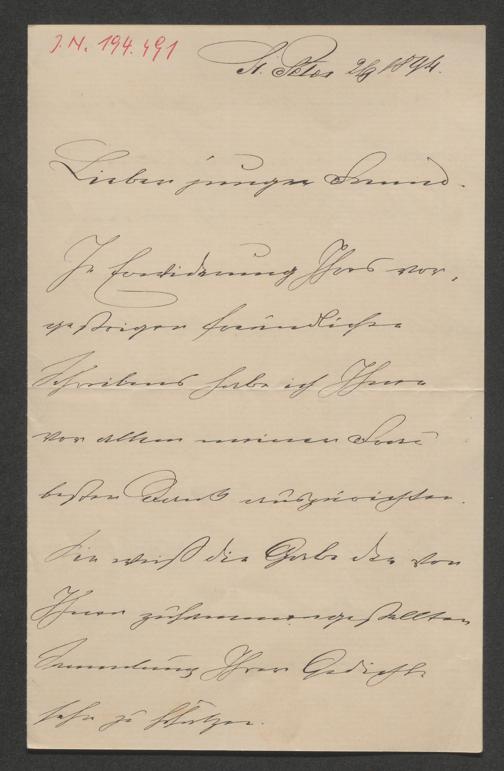 J.N. 194.491
St. Peter 2/9 1894.
Lieber junger Freund.
In Erwiderung Ihres vor,
gestrigen freundlichen
Schreibens habe ich Ihnen
vor allem meiner Frau
besten Dank auszurichten.
Sie weiß die Gabe der von
Ihnen zusammengestellten
Sammlung Ihrer Gedichte
sehr zu schätzen.